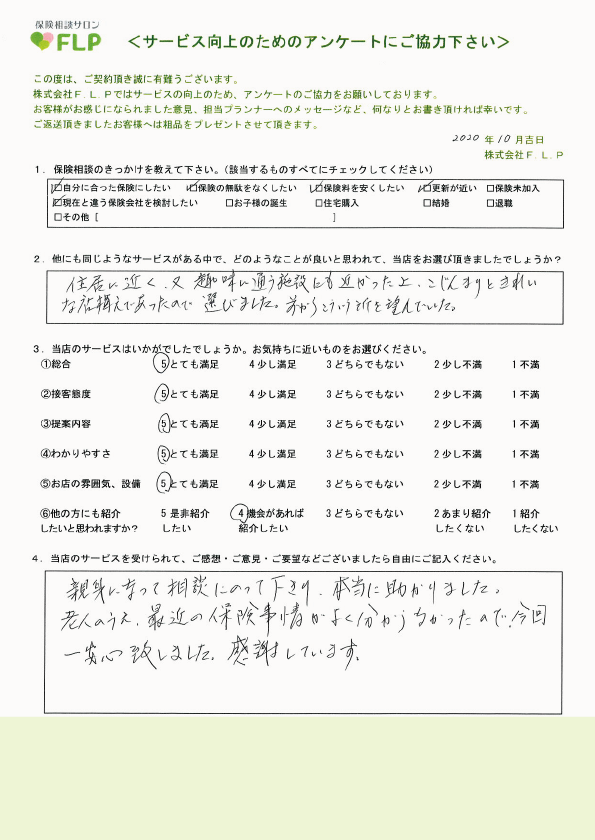 保険相談サロン
FLP
＜サービス向上のためのアンケートにご協力下さい＞
この度は、ご契約頂き誠に有難うございます。
株式会社F．L．Pではサービスの向上のため、アンケートのご協力をお願いしております。
お客様がお感じになられました意見、担当プランナーへのメッセージなど、何なりとお書き頂ければ幸いです。
ご返送頂きましたお客様へは粗品をプレゼントさせて頂きます。
2020 年 10 月吉日
株式会社F．L．P
1．保険相談のきっかけを教えて下さい。（該当するものすべてにチェックしてください）
☑自分に合った保険にしたい ☑保険の無駄をなくしたい ☑保険料を安くしたい ☑更新が近い □保険未加入
☑現在と違う保険会社を検討したい □お子様の誕生 □住宅購入 □結婚 □退職
□その他［ ］
2．他にも同じようなサービスがある中で、どのようなことが良いと思われて、当店をお選び頂きましたでしょうか？
住居に近く、又 趣味に通う施設にも近かった上、こじんまりときれい
な店構えであったので 選びました。前からこういう所を望んでいた。
3．当店のサービスはいかがでしたでしょうか。お気持ちに近いものをお選びください。
①総合 5とても満足 4少し満足 3どちらでもない 2少し不満 1不満
②接客態度 5とても満足 4少し満足 3どちらでもない 2少し不満 1不満
③提案内容 5とても満足 4少し満足 3どちらでもない 2少し不満 1不満
④わかりやすさ 5とても満足 4少し満足 3どちらでもない 2少し不満 1不満
⑤お店の雰囲気、設備 5とても満足 4少し満足 3どちらでもない 2少し不満 1不満
⑥他の方にも紹介 5 是非紹介 4 機会があれば 3どちらでもない 2あまり紹介 1紹介
したいと思われますか？ したい 紹介したい したくない したくない
4．当店のサービスを受けられて、ご感想・ご意見・ご要望などございましたら自由にご記入ください。
親身になって相談にのって下さり、本当に助かりました。
老人のうえ、最近の保険事情がよく分からなかったので、今回
一安心致しました。感謝しています。